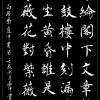 綸閣下文章
鼓樓中刻漏
坐黃昏誰是
薇花對紫薇